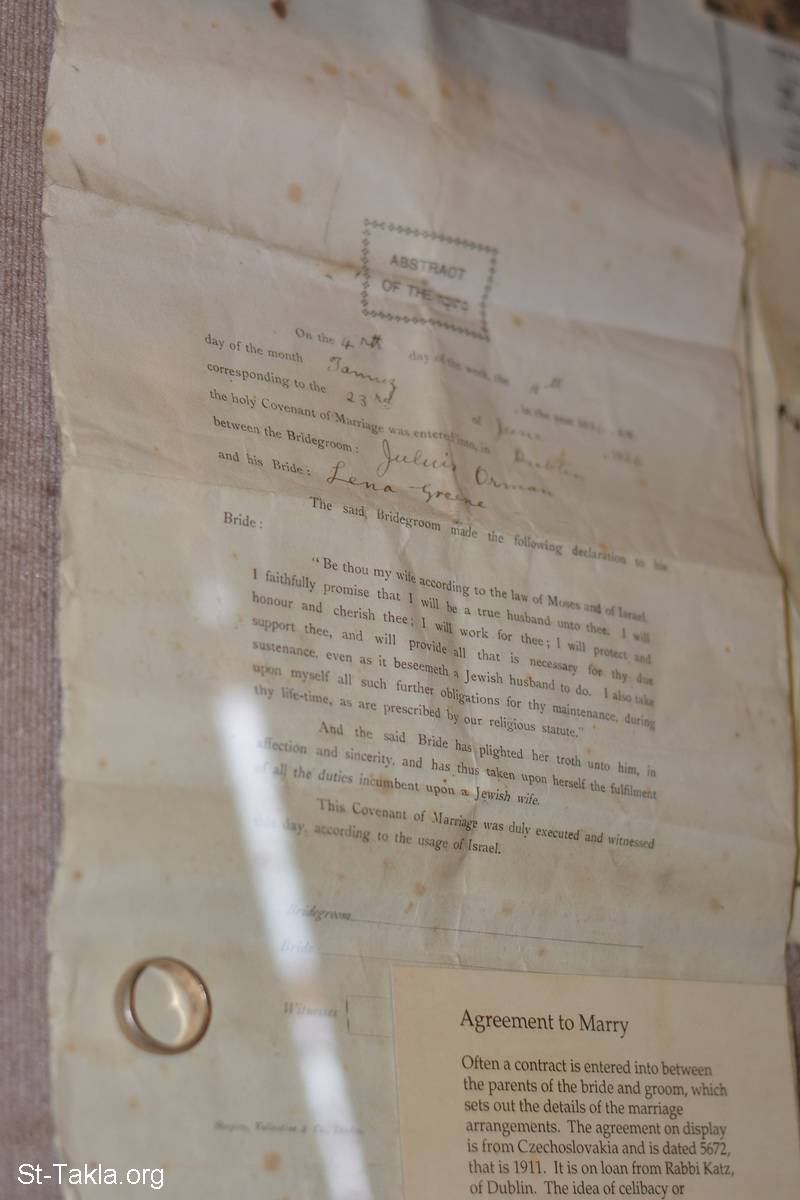 ABSTRACT
OF THE
On the 4th day of the week, the
day of the month Tamuz, in the year
corresponding to the 23rd of June
the holy Covenant of Marriage was entered into, in Dublin
between the Bridegroom: Julius Orman
and his Bride: Lena Greene
The said Bridegroom made the following declaration to his
Bride:
“Be thou my wife according to the law of Moses and of Israel.
I faithfully promise that I will be a true husband unto thee. I will
honour and cherish thee; I will work for thee; I will protect and
support thee, and will provide all that is necessary for thy due
sustenance, even as it beseemeth a Jewish husband to do. I also take
upon myself all such further obligations for thy maintenance, during
thy life-time, as are prescribed by our religious statute.”
And the said Bride has plighted her troth unto him, in
affection and sincerity, and has thus taken upon herself the fulfilment
of all the duties incumbent upon a Jewish wife.
This Covenant of Marriage was duly executed and witnessed
this day, according to the usage of Israel.
Bridegroom
Bride
Witnesses
Shapiro, Vallentine & Co., London
Agreement to Marry
Often a contract is entered into between
the parents of the bride and groom, which
sets out the details of the marriage
arrangements. The agreement on display
is from Czechoslovakia and is dated 5672,
that is 1911. It is on loan from Rabbi Katz,
of Dublin. The idea of celibacy or
St-Takla.org